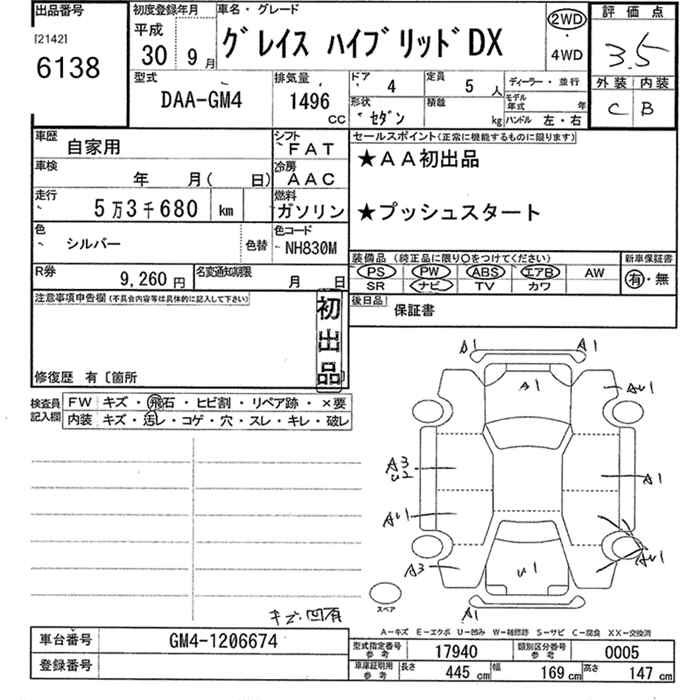 出品番号
[2142]
6138
初度登録年月
平成
30 9月
車名・グレード
グレイス ハイブリッドDX
2WD
・
4WD
評価点
3.5
外装 内装
C B
型式
DAA-GM4
排気量
1496
CC
ドア
4
定員
5 人
形状
セダン
積載
kg
ディーラー・並行
モデル
年式 年
ハンドル 左・右
車歴
自家用
シフト
FAT
車検
年 月( 日)
冷房
AAC
走行
5万3千680 km
燃料
ガソリン
色
シルバー
色替
色コード
NH830M
R券
9,260円
名変通知期限
月 日
セールスポイント(正常に機能するものに限ります)
★AA初出品
★プッシュスタート
装備品 (純正品に限り○をつけてください)
PS PW ABS エアB AW
SR ナビ TV カワ
新車保証書
有・無
後日品
保証書
注意事項申告欄(不具合内容等は具体的に記入して下さい)
初出品
修復歴 有〔箇所
検査員
記入欄
FW キズ・飛石・ヒビ割・リペア跡・×要
内装 キズ・汚レ・コゲ・穴・スレ・キレ・破レ
A1 A1
A1
AU1
A3
U2
A1
AU1
AU1
A3
U1
A1
スペア
キズ・凹有
A-キズ E-エクボ U-凹み W-補修跡 S-サビ C-腐食 XX-交換済
車台番号
GM4-1206674
登録番号
型式指定番号
参考
17940
類別区分番号
参考
0005
車庫証明用
参考
長さ
445 cm
幅
169 cm
高さ
147 cm